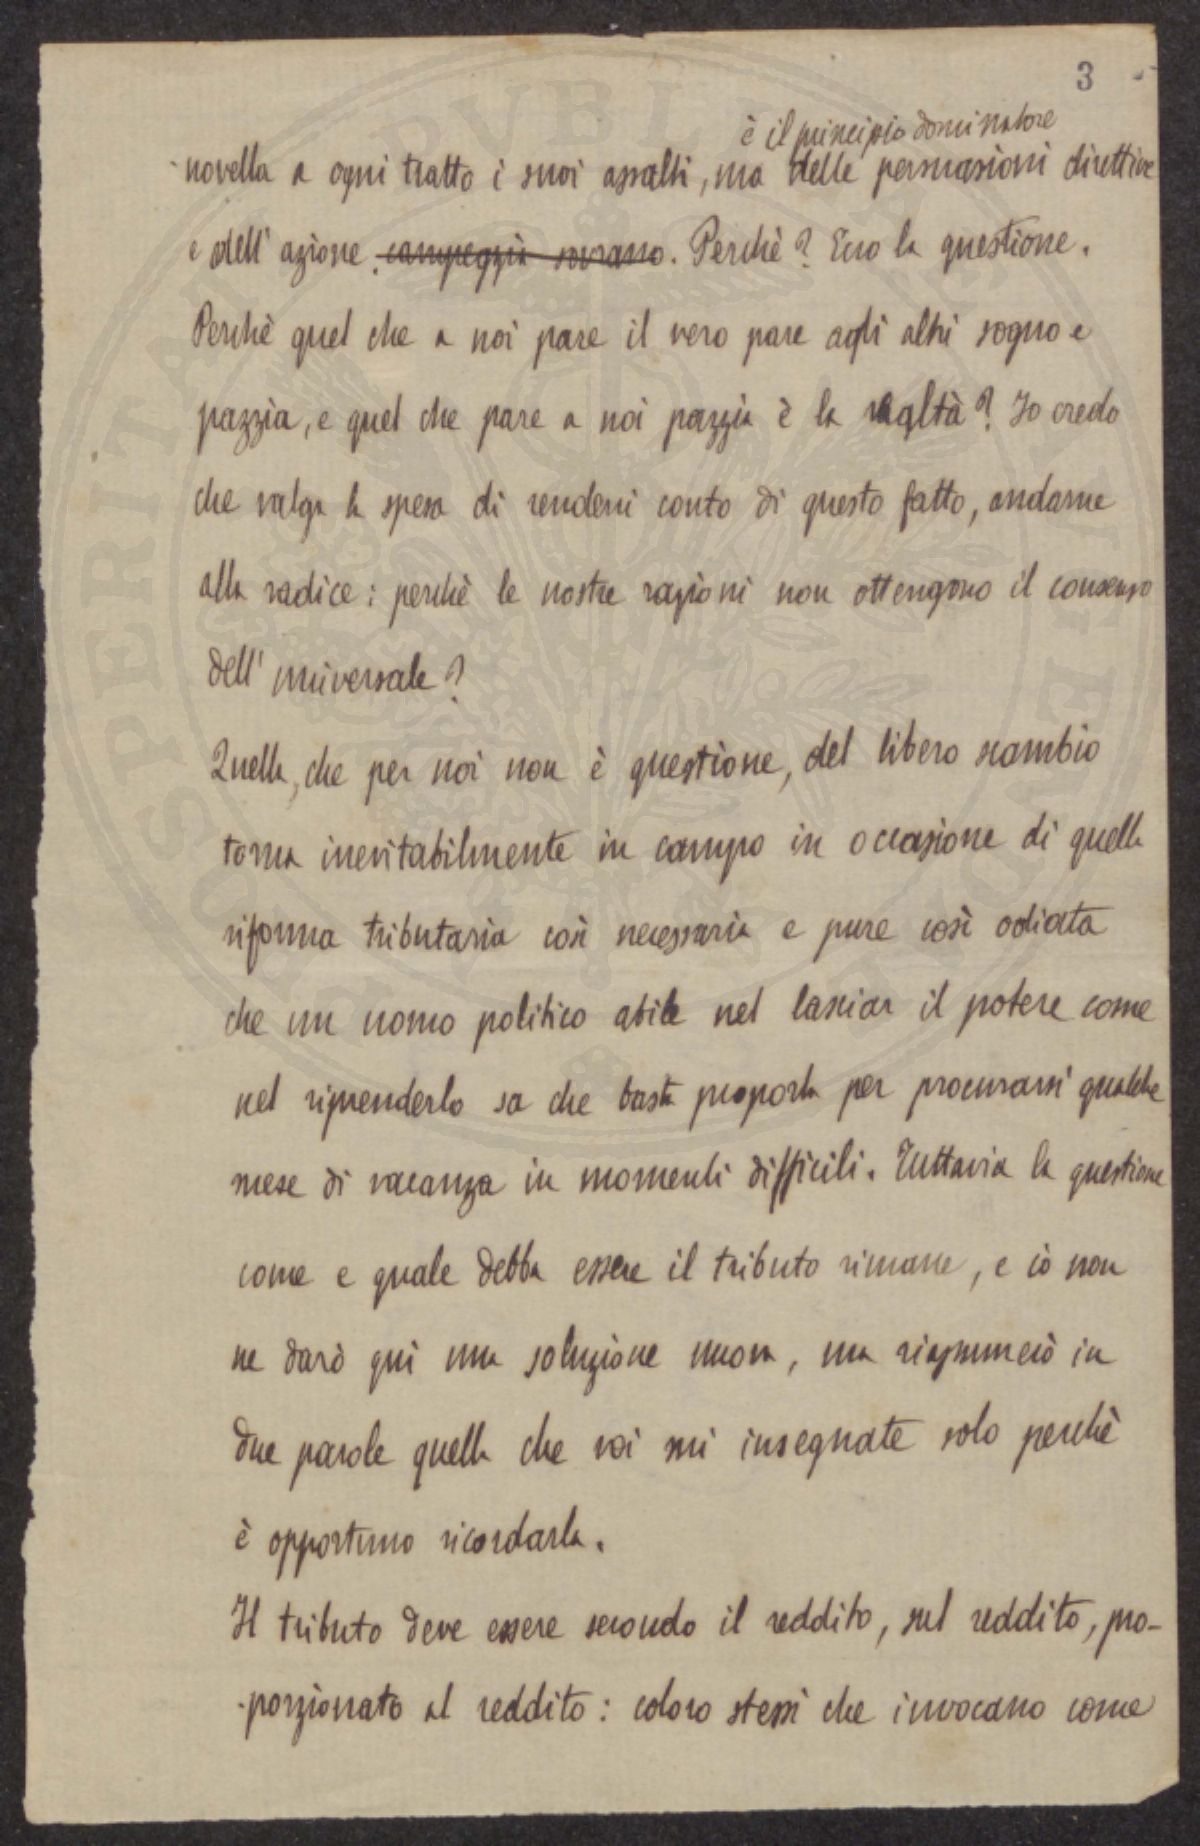 3
è il principio dominatore
novella a ogni tratto i suoi assalti, ma delle persuasioni direttive
e dell'azione campeggia sovrano. Perchè? Ecco la questione.
Perchè quel che a noi pare il vero pare agli altri sogno e
pazzia, e quel che pare a noi pazzia è la realtà? Io credo
che valga la spesa di renderci conto di questo fatto, andarne
alla radice: perchè le nostre ragioni non ottengono il consenso
dell'universale?
Quella, che per noi non è questione, del libero scambio
torna inevitabilmente in campo in occasione di quella
riforma tributaria così necessaria e pure così odiata
che un uomo politico abile nel lasciar il potere come
nel riprenderlo sa che basta proporla per procurarsi qualche
mese di vacanza in momenti difficili. Tuttavia la questione
come e quale debba essere il tributo rimane, e io non
ne darò qui una soluzione nuova, ma riassumerò in
due parole quella che voi mi insegnate solo perchè
è opportuno ricordarla.
Il tributo deve essere secondo il reddito, sul reddito, pro-
-porzionato al reddito: coloro stessi che invocano come
PROSPERITATI PVBLICAE